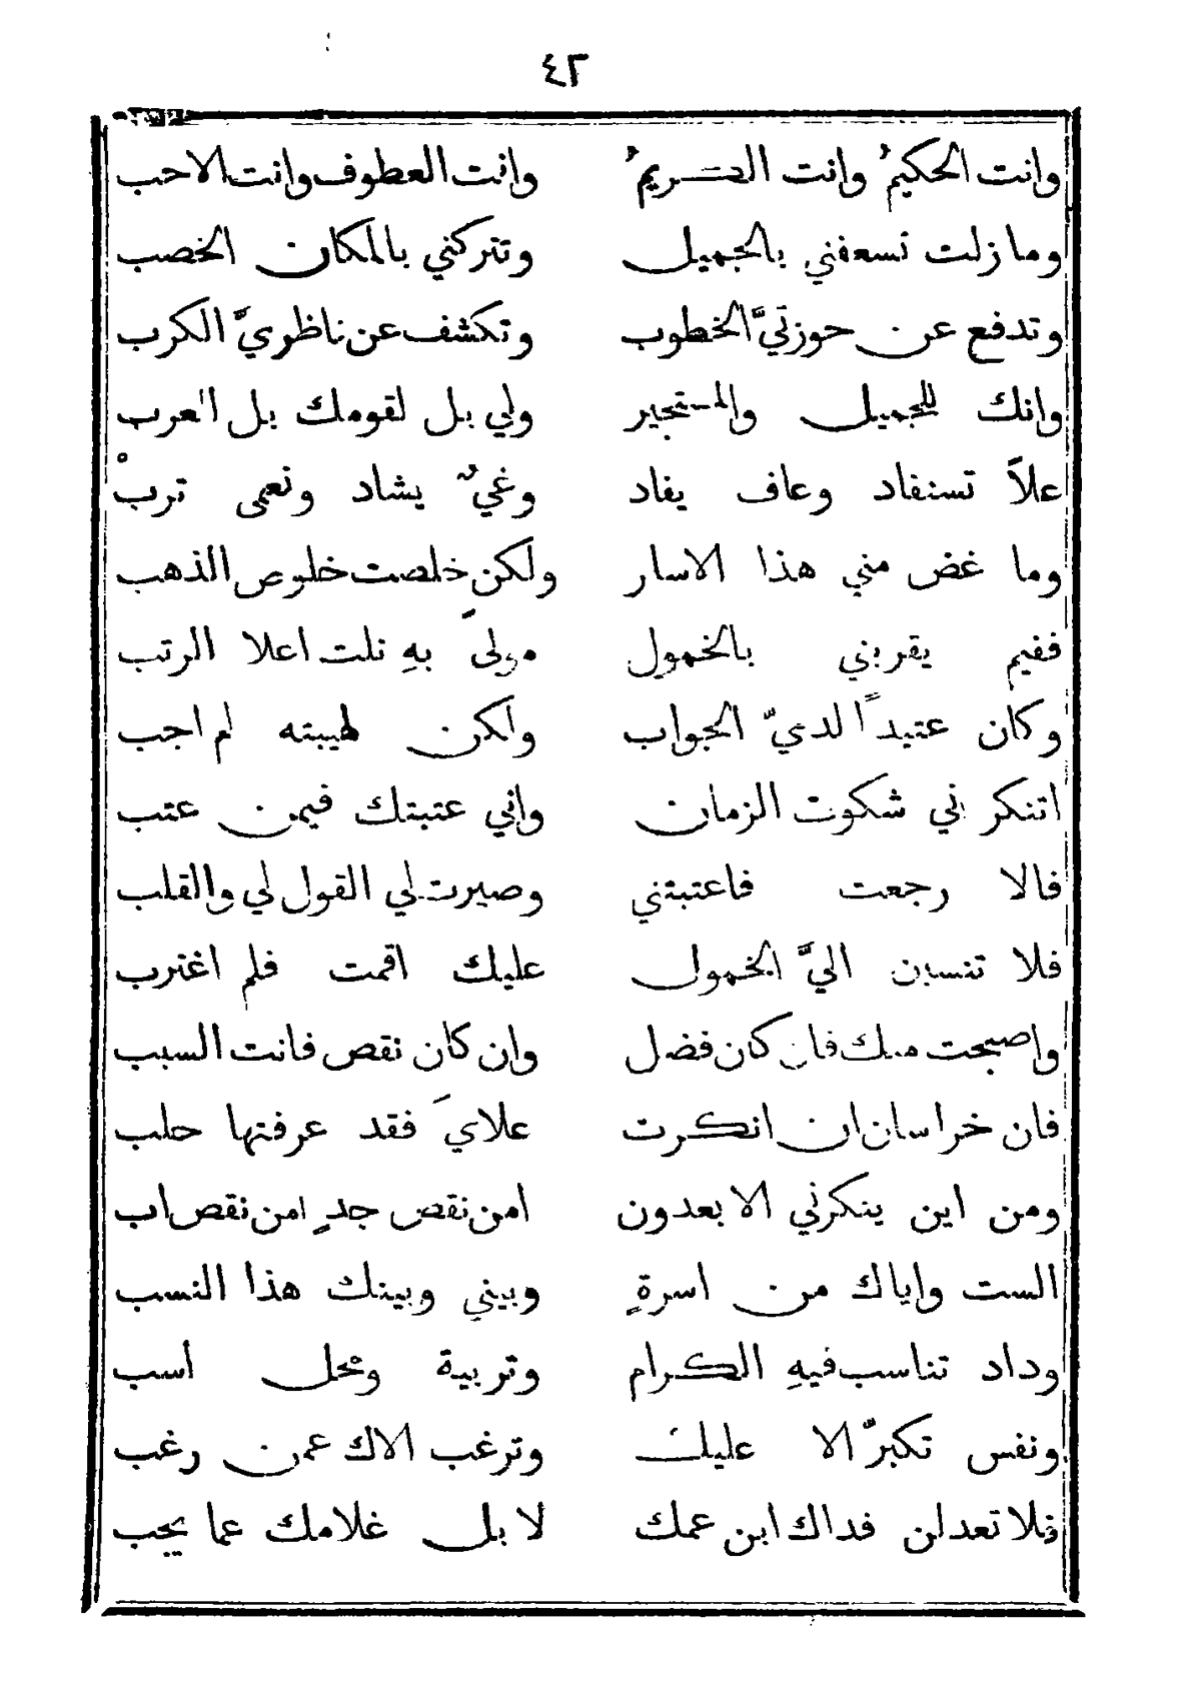 ٤٢
وانت الحكيمُ وانت الكريمُ وانت العطوف وانت الاحب
وما زلت تسعفني بالجميل وتتركني بالمكان الخصب
وتدفع عن حوزتيَّ الخطوب وتكشف عن ناظريَّ الكرب
وانك للجميل والمستجير ولي بل لقومك بل العرب
علاً تستفاد وعاف يفاد وغيٌ يشاد ونعمى تربْ
وما غض مني هذا الاسار ولكن خلصت خلوص الذهب
ففيم يقربني بالخمول مولىً بهِ نلت اعلا الرتب
وكان عتيداً لديّ الجواب ولكن لهيبته لم اجب
اتنكر اني شكوت الزمان واني عتبتك فيمن عتب
فالا رجعت فاعتبتني وصيرت لي القول لي والقلب
فلا تنسبن اليَّ الخمول عليك اقمت فلم اغترب
واصبحت منك فان كان فضل وان كان نقص فانت السبب
فان خراسان ان انكرت علايَ فقد عرفتها حلب
ومن اين ينكرني الابعدون امن نقص جدٍ امن نقص اب
الست واياك من اسرةٍ وبيني وبينك هذا النسب
وداد تناسب فيهِ الكرام وتربية ومحل أسب
ونفس تكبرّ الا عليك وترغب الاك عمن رغب
فلا تعدلن فداك ابن عمك لا بل غلامك عما يجب